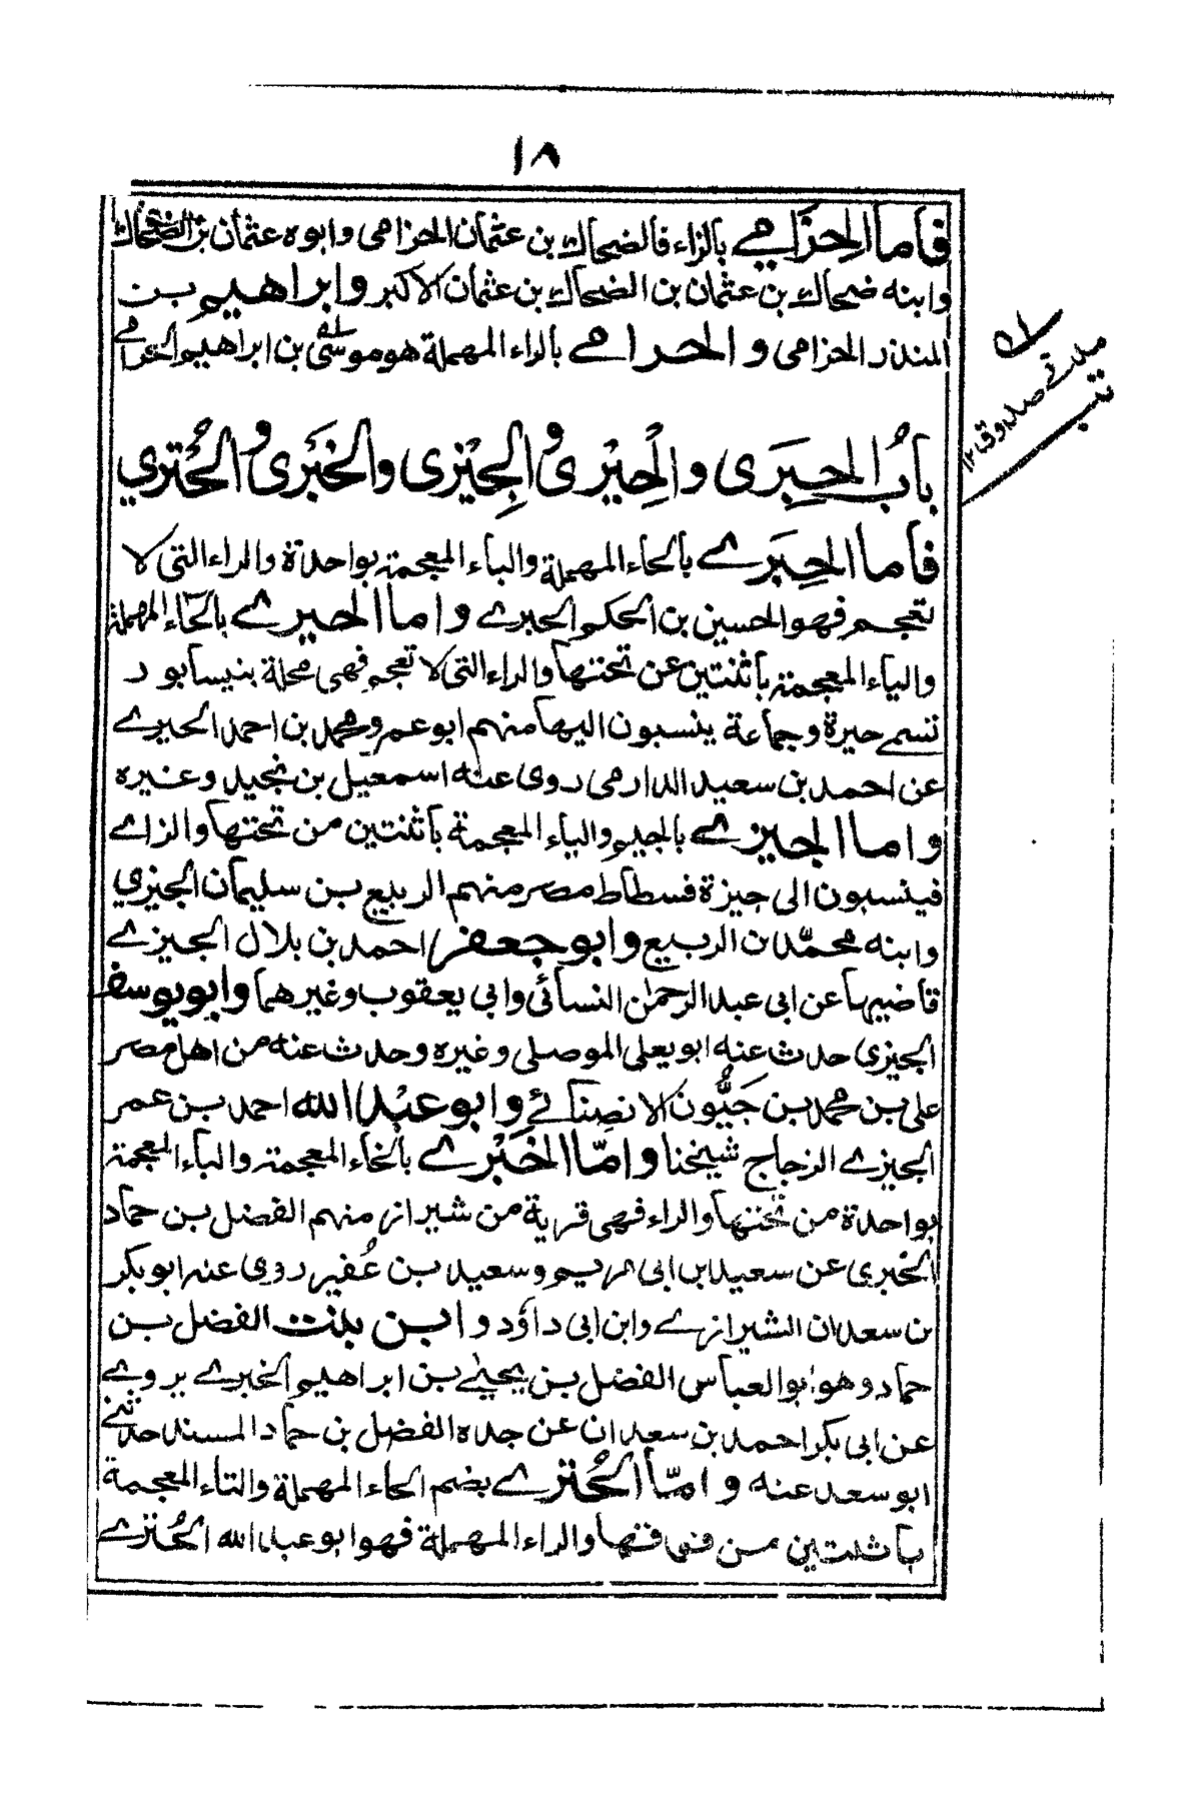 ١٨
فاما الحِزَامے بالزاء فالضحاك بن عثمان الحزامى وابوه عثمان بن الضحاك
وابنه ضحاك بن عثمان بن الضحاك بن عثمان الاكبر وابراهيم بن
المنذر الحزامى والحرامے بالراء المهملة هو موسٰى بن ابراهيم الحرامے
بابُ الحِبَرى والحِيْرى والجِيْزى والخَبَرى والحُتري
فاما الحِبَرے بالحاء المهملة والباء المعجمة بواحدة والراء التى لا
تعجم فهو الحسين بن الحكم الحبرے واما الحيرے بالحاء المهملة
والياء المعجمة باثنتين عن تحتها والراء التى لا تعجم فهى محلة بنيسابور
تسمے حيرة وجماعة ينسبون اليها منهم ابو عمرو محمد بن احمد الحيرے
عن احمد بن سعيد الدارمى روى عنه اسمعيل بن نجيد وغيره
واما الجيزے بالجيم والياء المعجمة باثنتين من تحتها والزاے
فينسبون الى جيزة فسطاط مصر منهم الربيع بن سليمان الجيزي
وابنه محمّد بن الربيع وابو جعفر احمد بن بلال الجيزے
قاضيها عن ابى عبد الرحمٰن النسائى وابى يعقوب وغيرهما وابو يوسف
الجيزى حدث عنه ابو يعلى الموصلى وغيره وحدث عنه من اهل مصر
على بن محمد بن حَيُّون الانصِنائے وابو عبْد الله احمد بن عمر
الجيزے الزجاج شيخنا وامّا الخَبْرے بالخاء المعجمة والباء المعجمة
بواحدة من تحتها والراء فهى قرية من شيراز منهم الفضل بن حماد
الخبرى عن سعيد ابن ابى مريم وسعيد بن عُفير روى عنه ابو بكر
بن سعدان الشيرازے وابن ابى داؤد وابن بنت الفضل بن
حماد وهو ابو العباس الفضل بن يحيٰے بن ابراهيم الخبرے يروے
عن ابى بكر احمد بن سعدان عن جده الفضل بن حماد المسند حدثنے
ابو سعد عنه وامّا الحُترے بضم الحاء المهملة والتاء المعجمة
باثنتين من فوقها والراء المهملة فهو ابو عبد الله الحُترے
مدنى صدوق ١٢